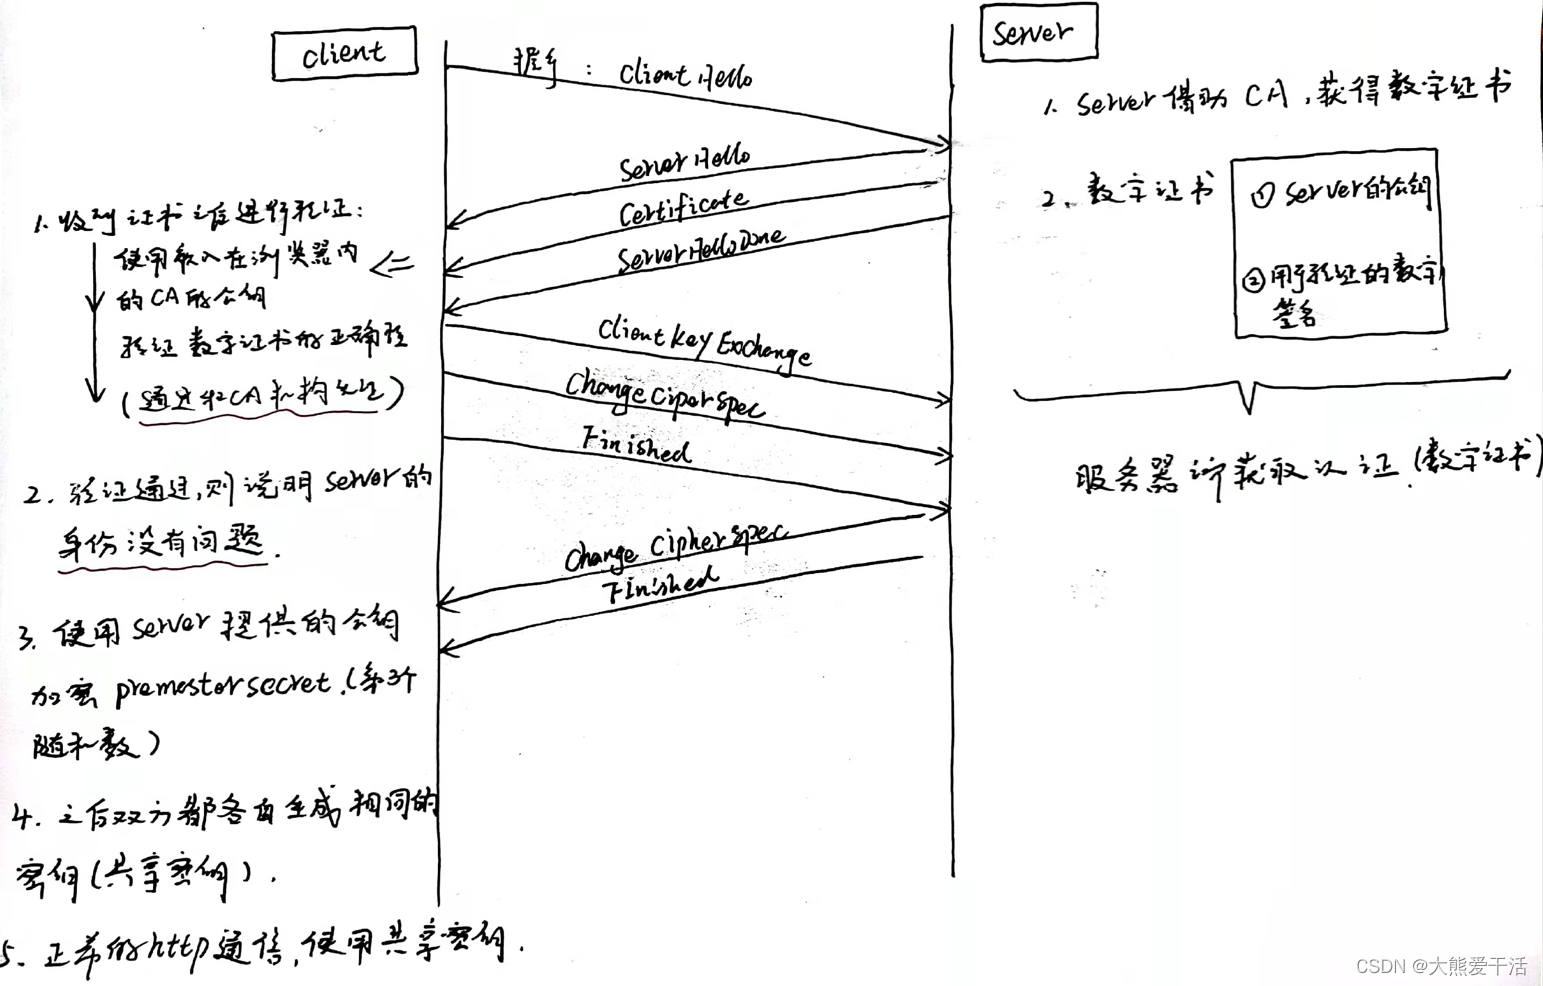 client
Server
握手：Client Hello
1. Server借助CA，获得数字证书
Server Hello
2、数字证书
① Server的公钥
②用于验证的数字
签名
Certificate
ServerHelloDone
1. 收到证书之后进行验证：
使用嵌入在浏览器内
的CA的公钥
验证数字证书的正确性
(通过和CA
ClientKeyExchange
Change Ciper spec
Finished
服务器 获取认证.(数字证书)
2. 验证通过，则说明Server的
身份没有问题.
Change Cipher spec
Finished
3. 使用Server提供的公钥
加密premaster secret.(第3个
随机数)
4. 之后双方都各自生成相同的
密钥(共享密钥).
5. 正常的http通信，使用共享密钥.
CSDN @大熊爱干活